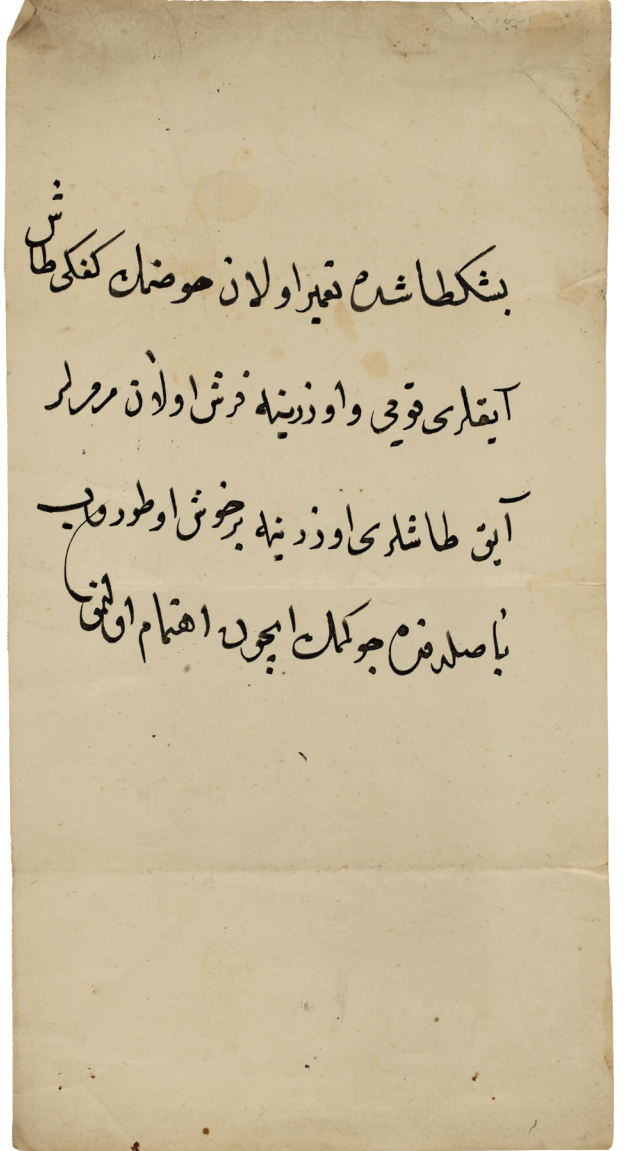 بشكطاشده تعمير اولان حوضك كفكى طاش
آيقلرى قومى و اوزرينه فرش اولان مرمرلر
آيق طاشلرى اوزرينه برخوش اوطوروب
باصلدقده چوكمك ايچون اهتمام اولنمق